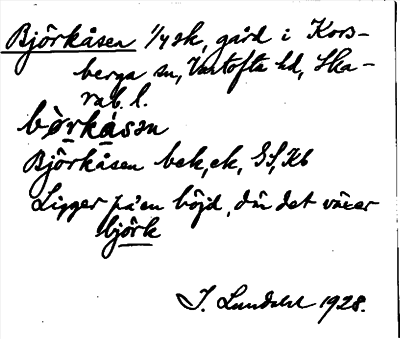 Björkåsen 1/4 sk, gård i Kors-
berga sn, Vartofta hd, Ska-
rab. l.
bò̱rkása̱n
Björkåsen bek, ek, GS, Kb
Ligger på en höjd, där det växer
björk
J. Lundahl 1928.